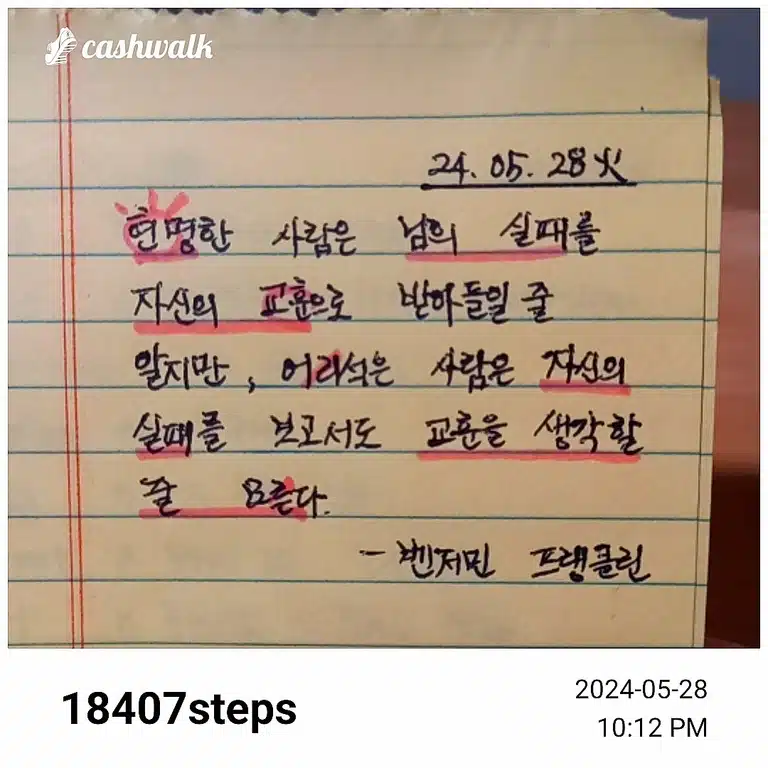 cashwalk
24. 05. 28 火
현명한 사람은 남의 실패를
자신의 교훈으로 받아들일 줄
알지만, 어리석은 사람은 자신의
실패를 보고서도 교훈을 생각할
줄 모른다.
- 벤저민 프랭클린
18407steps
2024-05-28
10:12 PM